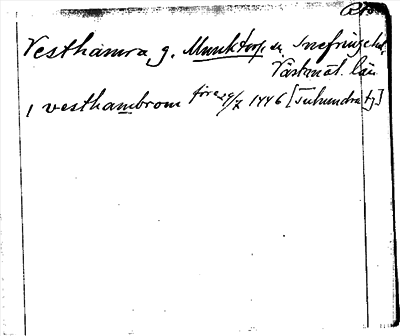 Vesthamra, g. Munktorp sn Snefringe hd,
Västmanl. län
i vesthambrom före 29/7 1446 [Tuhundra tg]